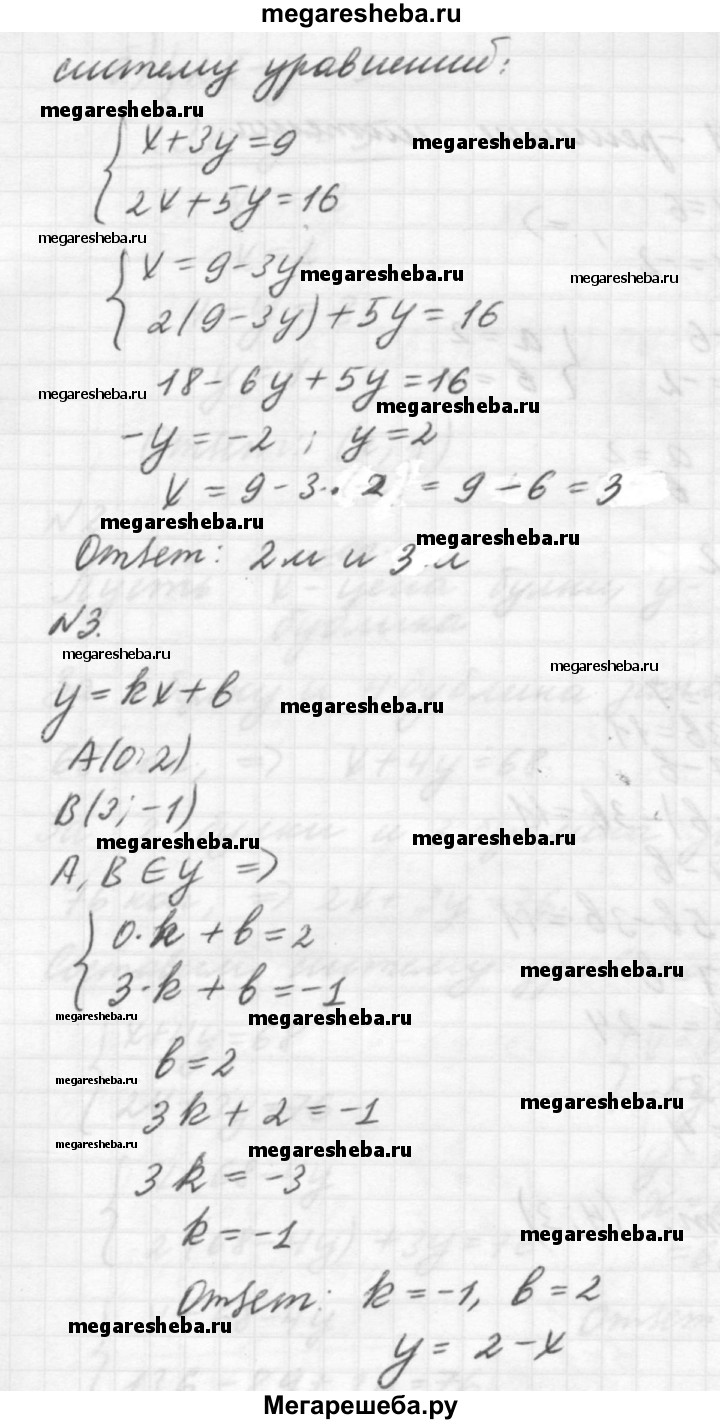 megaresheba.ru
систему уравнений:
megaresheba.ru
x+3y=9
megaresheba.ru
2x+5y=16
megaresheba.ru
x=9-3y
megaresheba.ru
megaresheba.ru
2(9-3y)+5y=16
18-6y+5y=16
megaresheba.ru
megaresheba.ru
-y=-2; y=2
x=9-3·(2)=9-6=3
megaresheba.ru
megaresheba.ru
Ответ: 2 м и 3 л
N3.
megaresheba.ru
megaresheba.ru
y=kx+b
megaresheba.ru
A(0;2)
B(3;-1)
megaresheba.ru
megaresheba.ru
A, B ∈ y ⇒
0·k+b=2
megaresheba.ru
3·k+b=-1
megaresheba.ru
megaresheba.ru
b=2
megaresheba.ru
megaresheba.ru
3k+2=-1
megaresheba.ru
megaresheba.ru
3k=-3
k=-1
megaresheba.ru
Ответ: k=-1, b=2
megaresheba.ru
y=2-x
Мегарешеба.ру